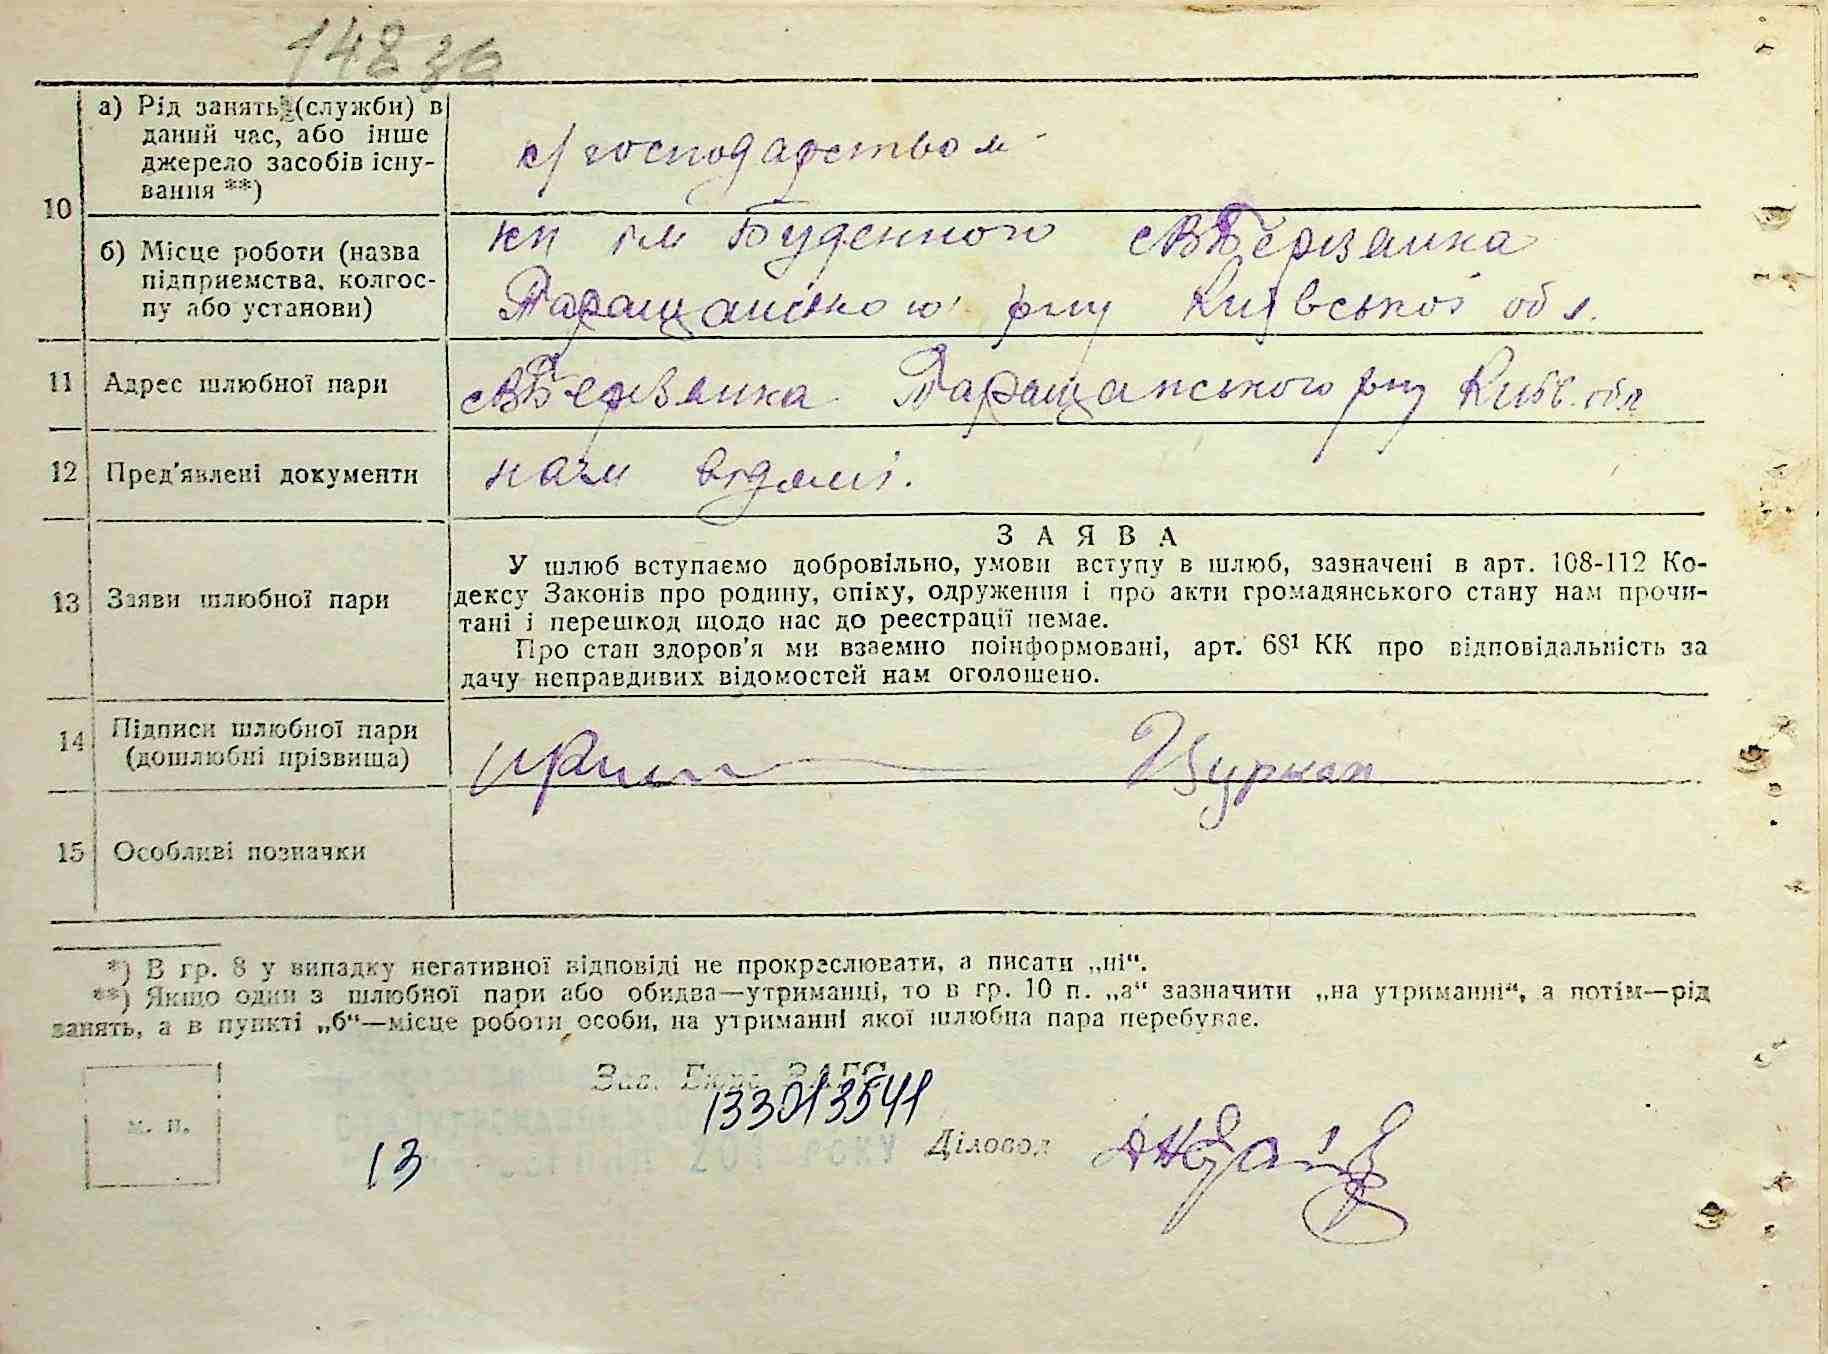 142 зв
10
а) Рід занять (службн) в
даний час, або інше
джерело засобів існу-
вання **)
с/господарством
б) Місце роботи (назва
підприємства, колгос-
пу або установи)
кп ім Буденного с ВБерзанка
Таращанського р-ну Київської обл.
11 Адрес шлюбної пари
с ВБерзанка Таращанського р-ну Київ. обл
12 Пред'явлені документи
нам відомі.
13 Заяви шлюбної пари
ЗАЯВА
У шлюб вступаємо добровільно, умови вступу в шлюб, зазначені в арт. 108-112 Ко-
дексу Законів про родину, опіку, одруження і про акти громадянського стану нам прочи-
тані і перешкод щодо нас до реєстрації немає.
Про стан здоров'я ми взаємно поінформовані, арт. 68¹ КК про відповідальність за
дачу неправдивих відомостей нам оголошено.
14 Підписи шлюбної пари
(дошлюбні прізвища)
Цуркан
15 Особливі позначки
*) В гр. 8 у випадку негативної відповіді не прокреслювати, а писати „ні“.
**) Якщо один з шлюбної пари або обидва—утриманці, то в гр. 10 п. „а“ зазначити „на утриманні“, а потім—рід
занять, а в пункті „б“—місце роботи особи, на утриманні якої шлюбна пара перебуває.
Зав. Бюро ЗАГС
133013541
м. п.
13
Діловод